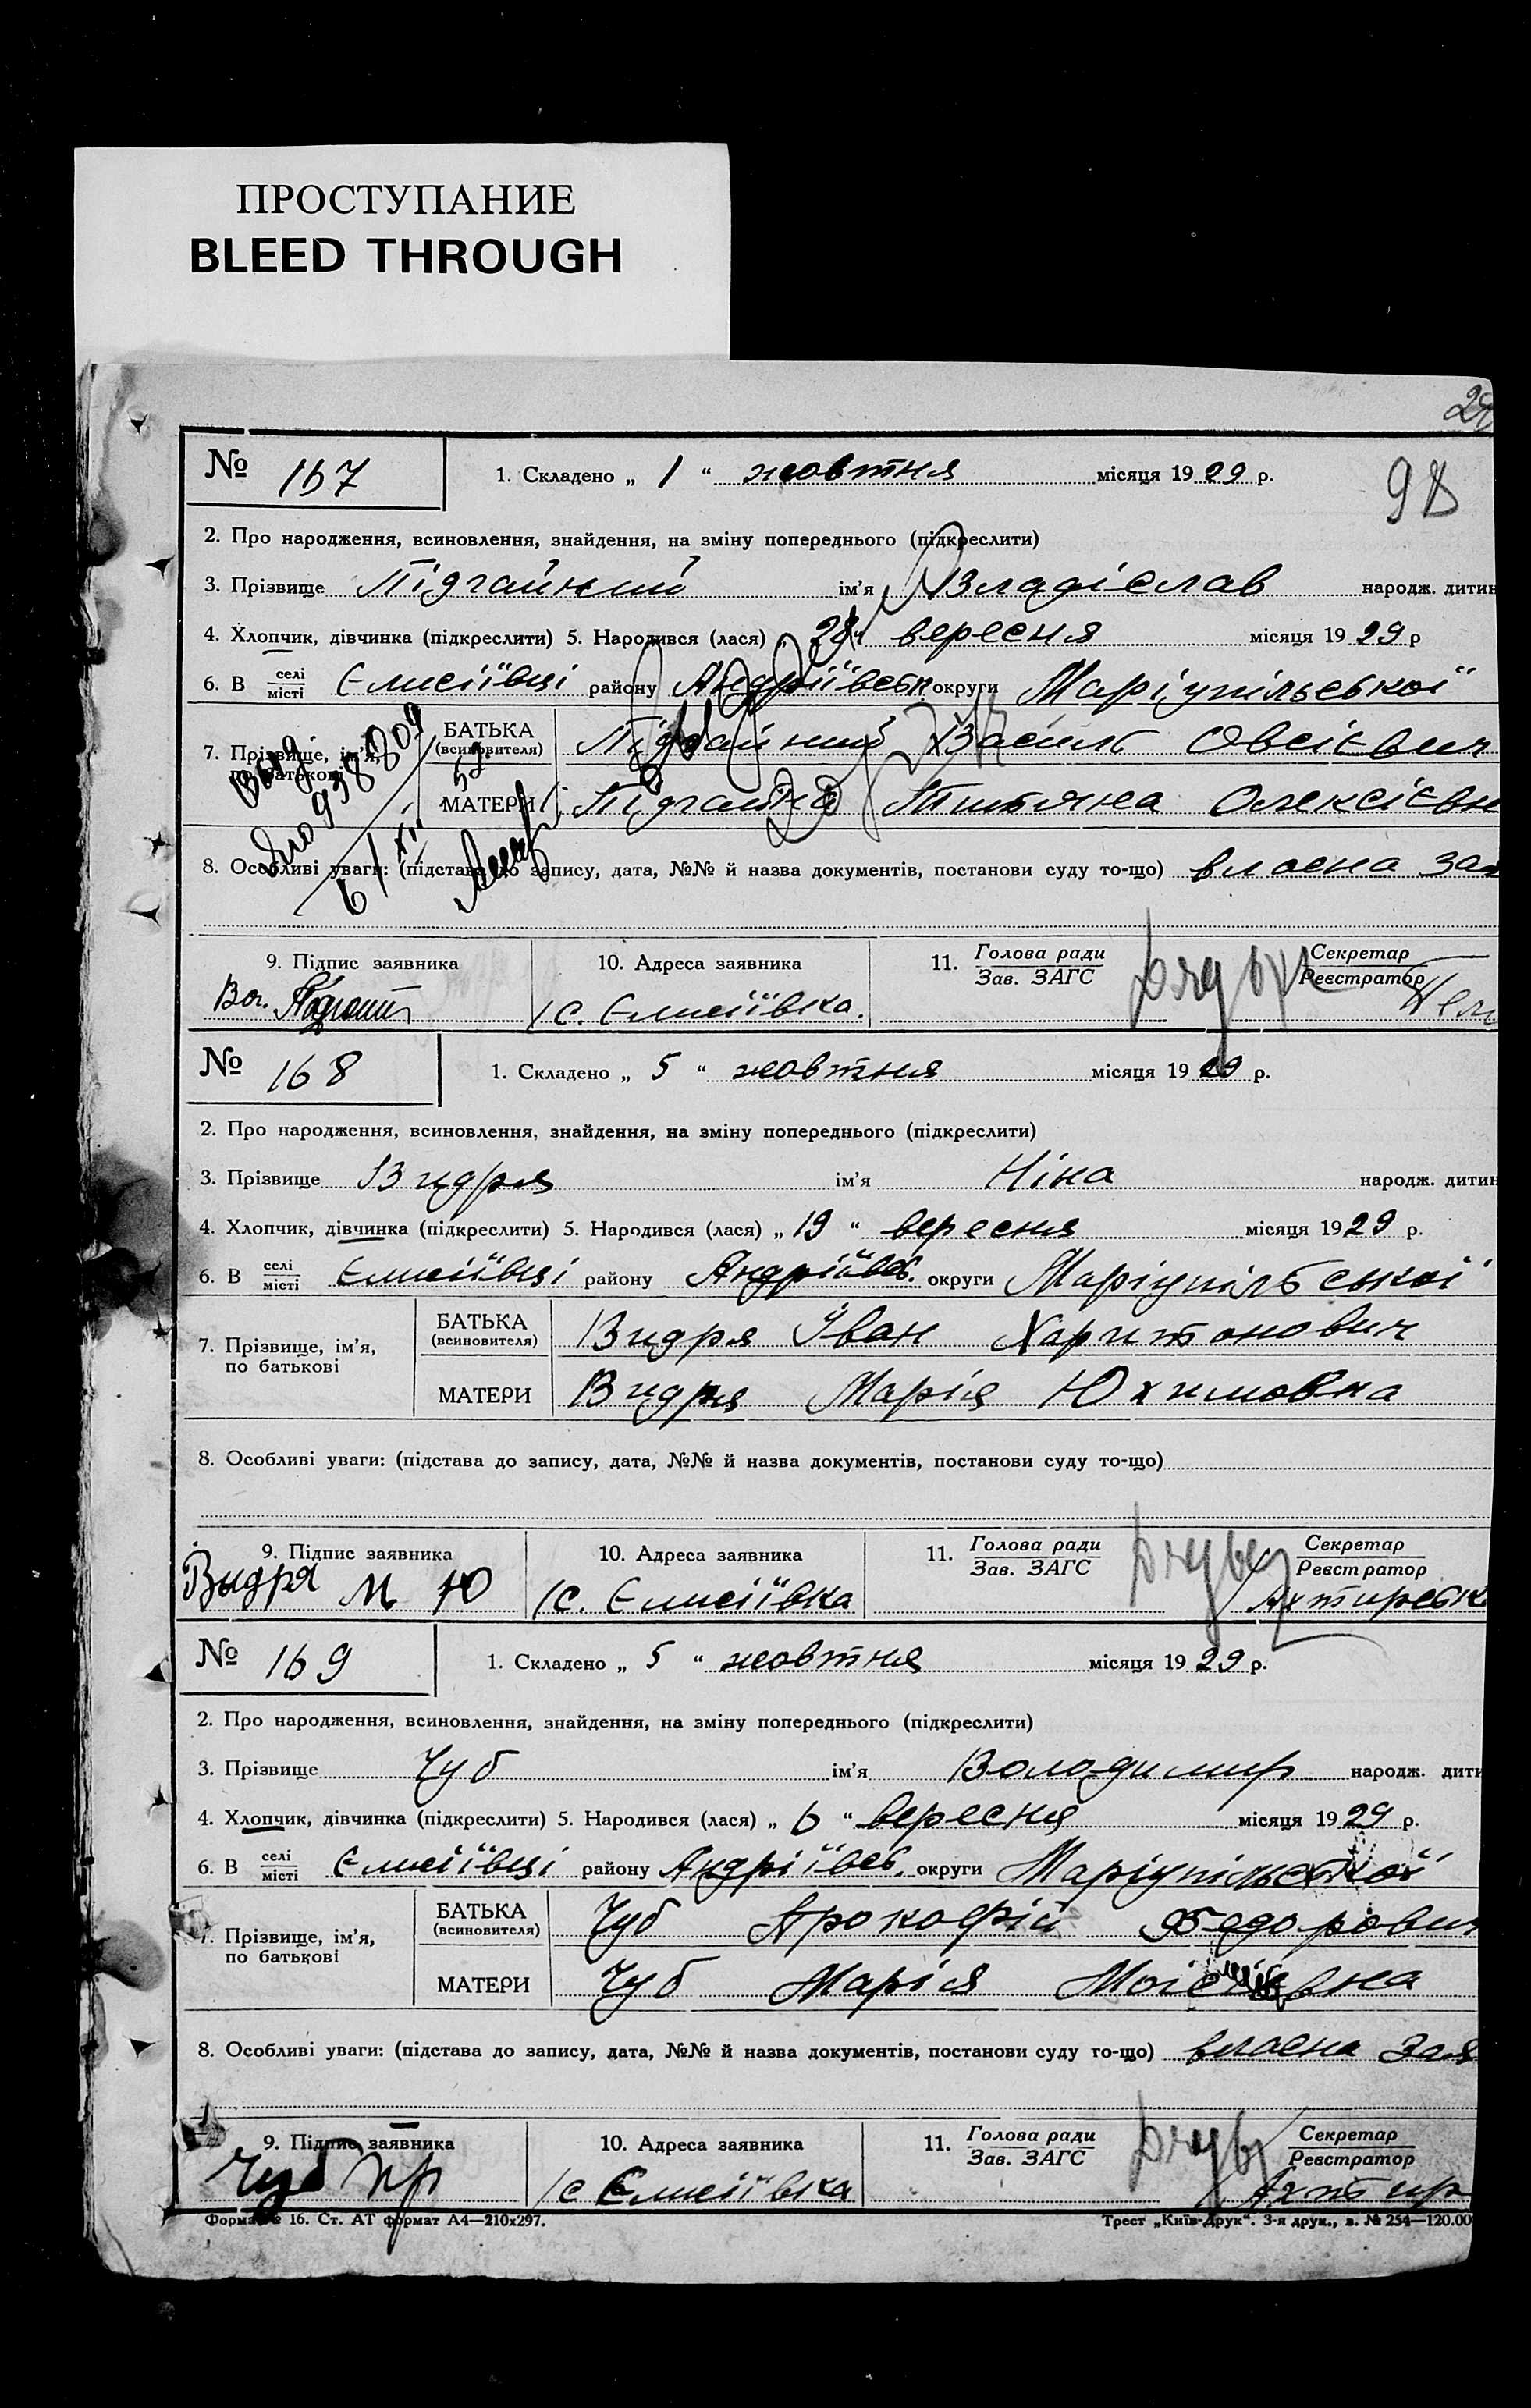 ПРОСТУПАНИЕ
BLEED THROUGH
98
№ 167
1. Складено „ 1 “ жовтня місяця 1929 р.
2. Про народження, всиновлення, знайдення, на зміну попереднього (підкреслити)
3. Прізвище Підгайний ім’я Владіслав народж. дитин
4. Хлопчик, дівчинка (підкреслити) 5. Народився (лася) „ 28 “ вересня місяця 1929 р
6. В селі місті Єлисіївці району Андріївськ округи Маріупільської
7. Прізвище, ім’я, по батькові
БАТЬКА (всиновителя) Підгайний Василь Овсієвич
МАТЕРИ Підгайна Титяна Олексієвн
8. Особливі уваги: (підстава до запису, дата, №№ й назва документів, постанови суду то-що) власна зая
9. Підпис заявника
10. Адреса заявника
11. Голова ради Зав. ЗАГС
Секретар Реєстратор
с. Єлисіївка.
№ 168
1. Складено „ 5 “ жовтня місяця 1929 р.
2. Про народження, всиновлення, знайдення, на зміну попереднього (підкреслити)
3. Прізвище Видря ім’я Ніна народж. дитин
4. Хлопчик, дівчинка (підкреслити) 5. Народився (лася) „ 19 “ вересня місяця 1929 р.
6. В селі місті Єлисіївці району Андріївс. округи Маріупільської
7. Прізвище, ім’я, по батькові
БАТЬКА (всиновителя) Видря Іван Харитонович
МАТЕРИ Видря Марія Юхимовна
8. Особливі уваги: (підстава до запису, дата, №№ й назва документів, постанови суду то-що)
9. Підпис заявника
10. Адреса заявника
11. Голова ради Зав. ЗАГС
Секретар Реєстратор
Выдря М Ю
с. Єлисіївка
Ахтирськ
№ 169
1. Складено „ 5 “ жовтня місяця 1929 р.
2. Про народження, всиновлення, знайдення, на зміну попереднього (підкреслити)
3. Прізвище Чуб ім’я Володимир народж. дити
4. Хлопчик, дівчинка (підкреслити) 5. Народився (лася) „ 6 “ вересня місяця 1929 р.
6. В селі місті Єлисіївці району Андріївс. округи Маріупільської
7. Прізвище, ім’я, по батькові
БАТЬКА (всиновителя) Чуб Прокофій Федорович
МАТЕРИ Чуб Марія
8. Особливі уваги: (підстава до запису, дата, №№ й назва документів, постанови суду то-що) власна зая
9. Підпис заявника
10. Адреса заявника
11. Голова ради Зав. ЗАГС
Секретар Реєстратор
Чуб Пр
с Єлисіївка
Ахтир
Форма № 16. Ст. АТ формат А4—210х297.
Трест „Київ-Друк“. 3-я друк., з. № 254—120.00